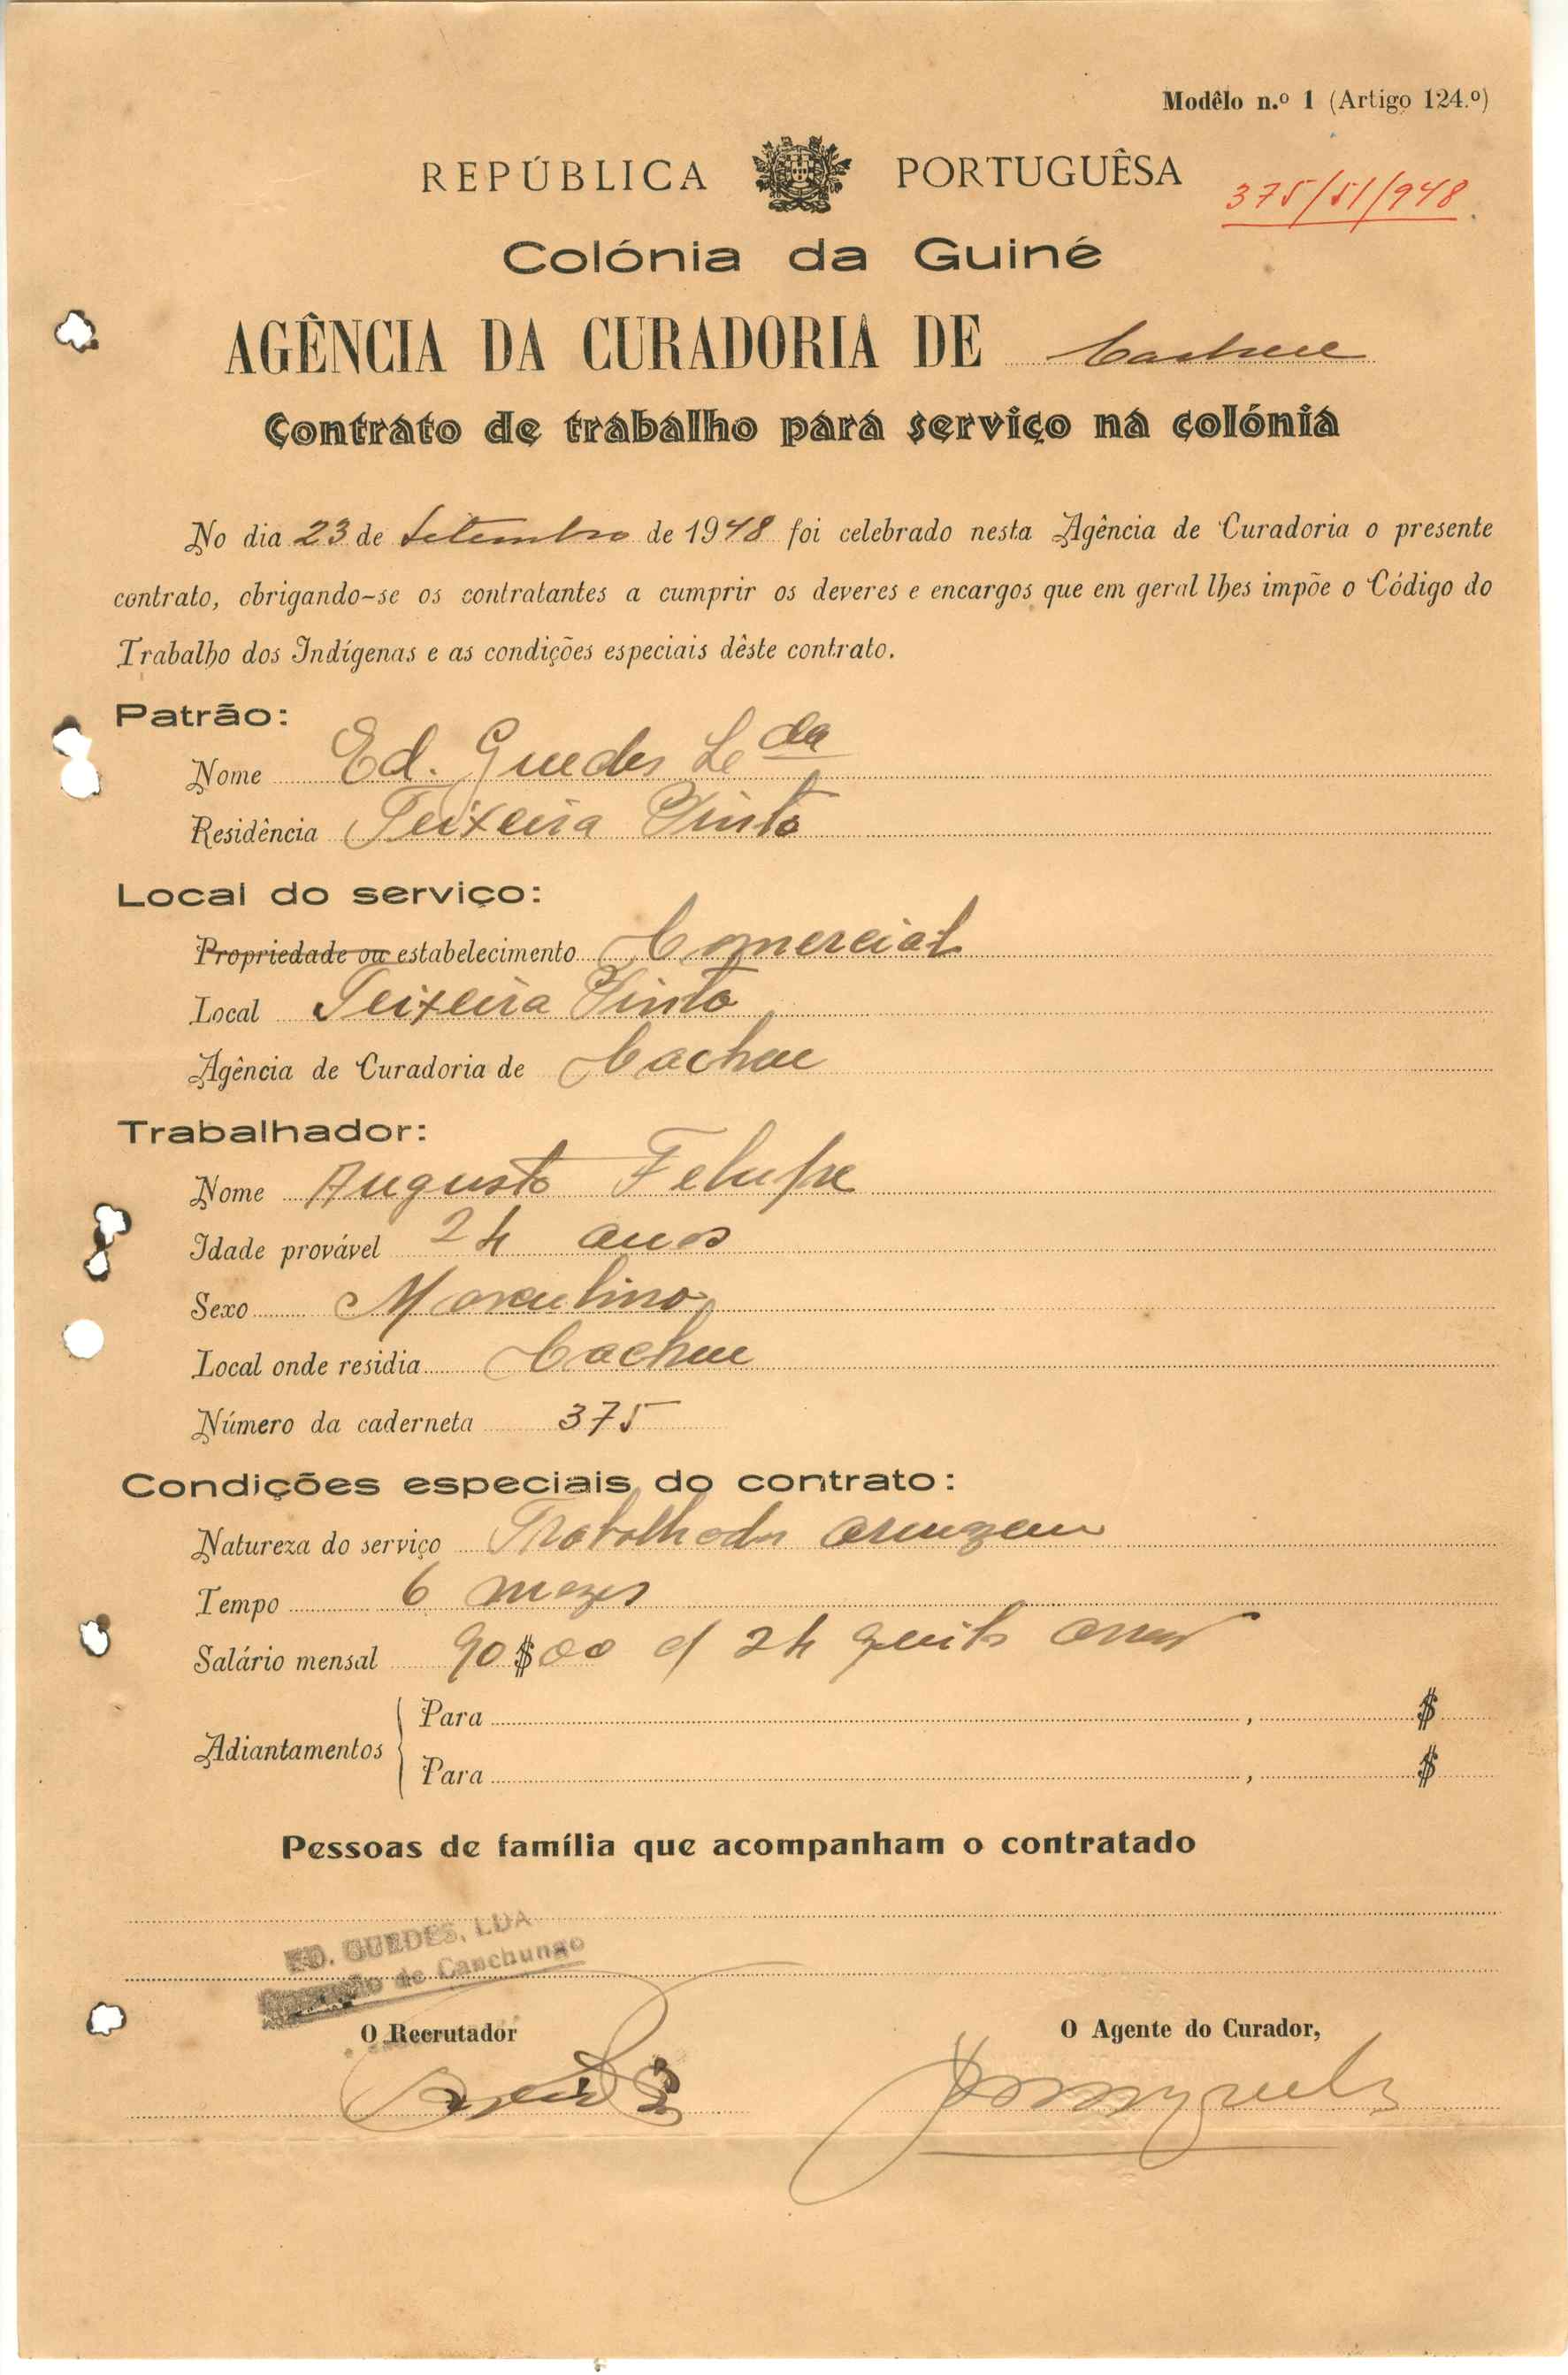 Modêlo n.º 1 (Artigo 124.º)
REPÚBLICA PORTUGUÊSA
375/51/948
Colónia da Guiné
AGÊNCIA DA CURADORIA DE Cacheu
Contrato de trabalho para serviço na colónia
No dia 23 de Setembro de 1948 foi celebrado nesta Agência de Curadoria o presente
contrato, obrigando-se os contratantes a cumprir os deveres e encargos que em geral lhes impõe o Código do
Trabalho dos Indígenas e as condições especiais dêste contrato.
Patrão:
Nome Ed. Guedes Lda
Residência Teixeira Pinto
Local do serviço:
Propriedade ou estabelecimento Comercial
Local Teixeira Pinto
Agência de Curadoria de Cacheu
Trabalhador:
Nome Augusto Felupe
Idade provável 24 anos
Sexo Masculino
Local onde residia Cacheu
Número da caderneta 375
Condições especiais do contrato:
Natureza do serviço Trabalhador armazem
Tempo 6 mezes
Salário mensal 90$00 e/ 24 quilos arroz
Adiantamentos
Para , $
Para , $
Pessoas de família que acompanham o contratado
ED. GUEDES, LDA
de Canchungo
O Recrutador
O Agente do Curador,